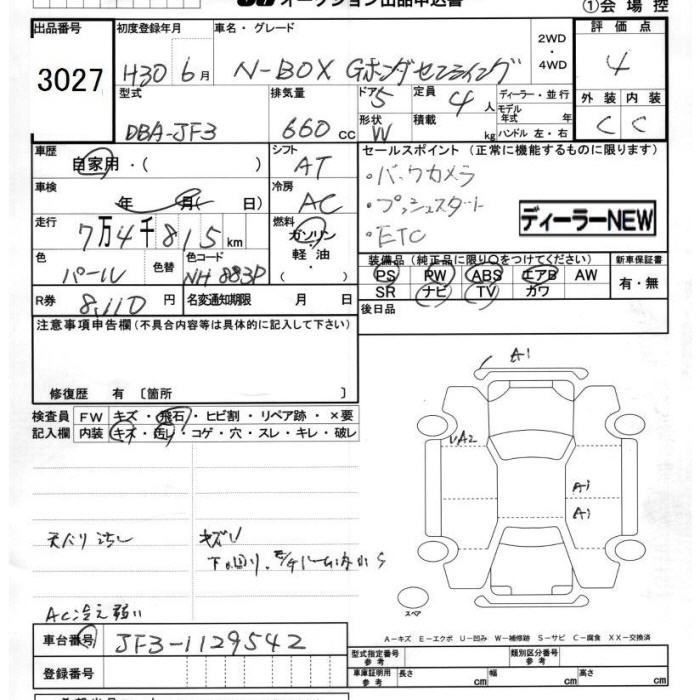 オークション出品申込書
①会場控
出品番号
3027
初度登録年月
H30 6月
車名・グレード
N-BOX Gホンダセンシング
2WD・4WD
評価点
4
型式
DBA-JF3
排気量
660cc
ドア
5
形状
W
定員
4人
積載
kg
ディーラー・並行
モデル年式 年
ハンドル 左・右
外装 内装
C C
車歴
自家用・( )
シフト
AT
車検
年 月( 日)
冷房
AC
走行
7万4千815km
燃料
ガソリン・軽油・
色
パール
色替
色コード
NH 883P
R券
8,110円
名変通知期限 月 日
セールスポイント(正常に機能するものに限ります)
・バックカメラ
・プッシュスタート
・ETC
ディーラーNEW
装備品(純正品に限り○をつけてください)
PS PW ABS エアB AW
SR ナビ TV カワ
新車保証書
有・無
後日品
注意事項申告欄(不具合内容等は具体的に記入して下さい)
修復歴 有〔箇所 〕
検査員記入欄
FW キズ・飛石・ヒビ割・リペア跡・×要
内装 キズ・汚レ・コゲ・穴・スレ・キレ・破レ
天バリ汚レ
キズU
AC冷え弱い
A1
A2
A1
A1
スペア
A-キズ E-エクボ U-凹み W-補修跡 S-サビ C-腐食 XX-交換済
車台番号
JF3-1129542
登録番号
型式指定番号 参考
類別区分番号 参考
車庫証明用 参考
長さ cm 幅 cm 高さ cm